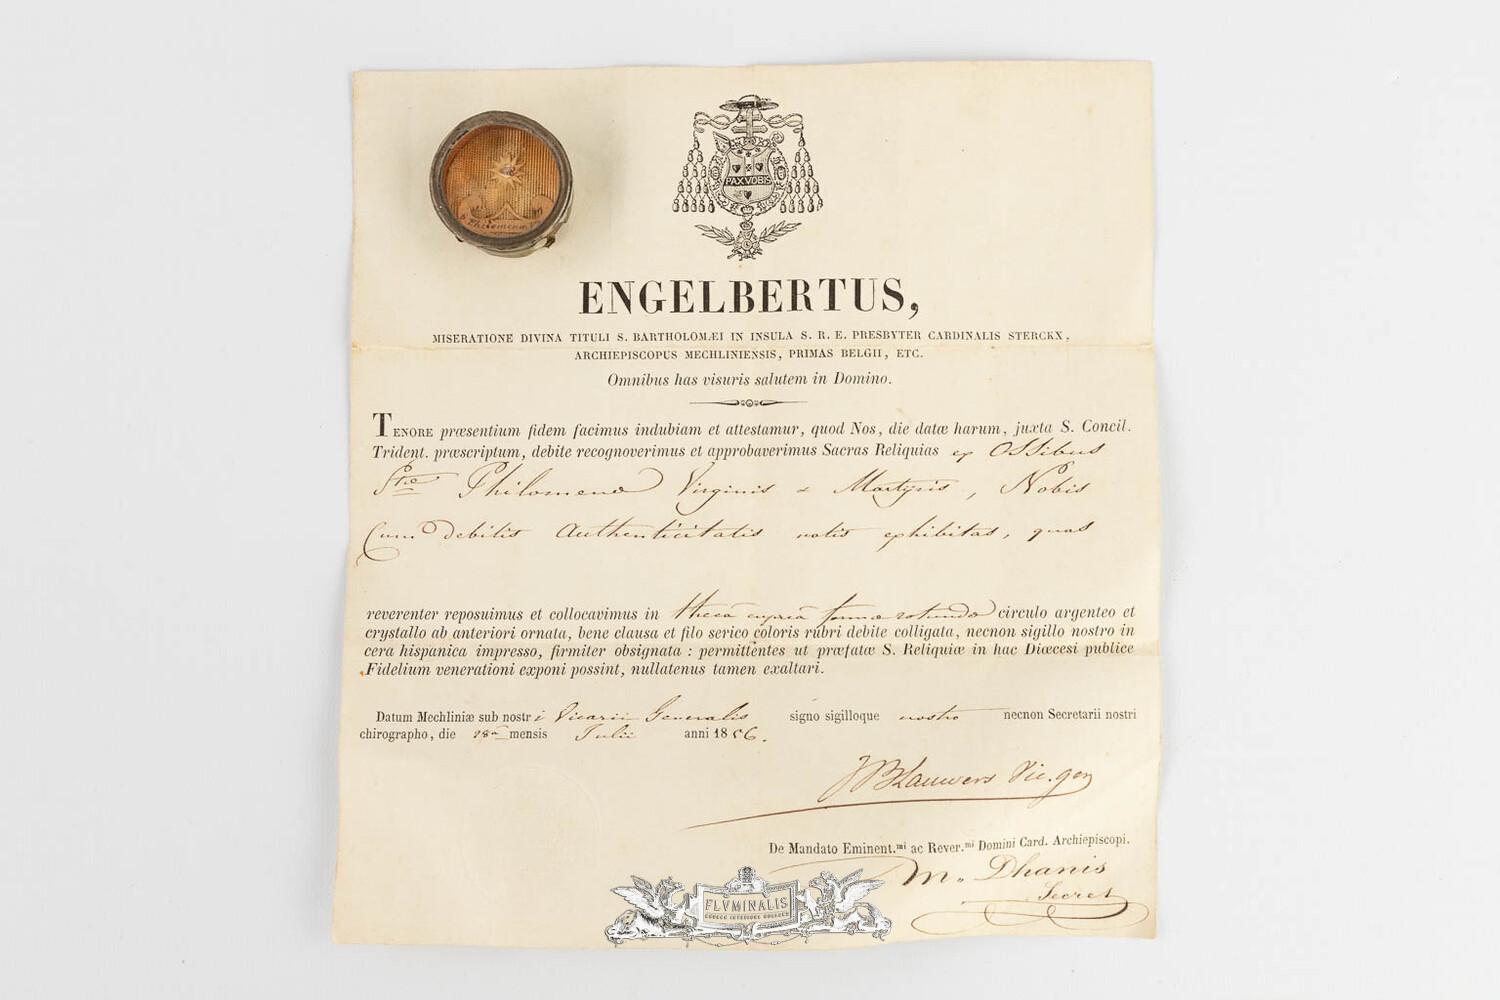 PAX VOBIS
S. Philomenæ V.
ENGELBERTUS,
MISERATIONE DIVINA TITULI S. BARTHOLOMÆI IN INSULA S. R. E. PRESBYTER CARDINALIS STERCKX,
ARCHIEPISCOPUS MECHLINIENSIS, PRIMAS BELGII, ETC.
Omnibus has visuris salutem in Domino.
TENORE præsentium fidem facimus indubiam et attestamur, quod Nos, die datæ harum, juxta S. Concil.
Trident. præscriptum, debite recognoverimus et approbaverimus Sacras Reliquias ex Ossibus
Stæ Philomenæ Virginis & Martyris, Nobis
Cum debitis authenticitatis notis exhibitas, quas
reverenter reposuimus et collocavimus in thecâ cupreâ formæ rotundæ circulo argenteo et
crystallo ab anteriori ornata, bene clausa et filo serico coloris rubri debite colligata, necnon sigillo nostro in
cera hispanica impresso, firmiter obsignata : permittentes ut præfatæ S. Reliquiæ in hac Diœcesi publice
Fidelium venerationi exponi possint, nullatenus tamen exaltari.
Datum Mechliniæ sub nostri Vicarii Generalis signo sigilloque nostro necnon Secretarii nostri
chirographo, die 28a mensis Julii anni 1856.
JB Lauwers Vic. gen
De Mandato Eminent.mi ac Rever.mi Domini Card. Archiepiscopi.
M. Dhanis
Secret
FLVMINALIS